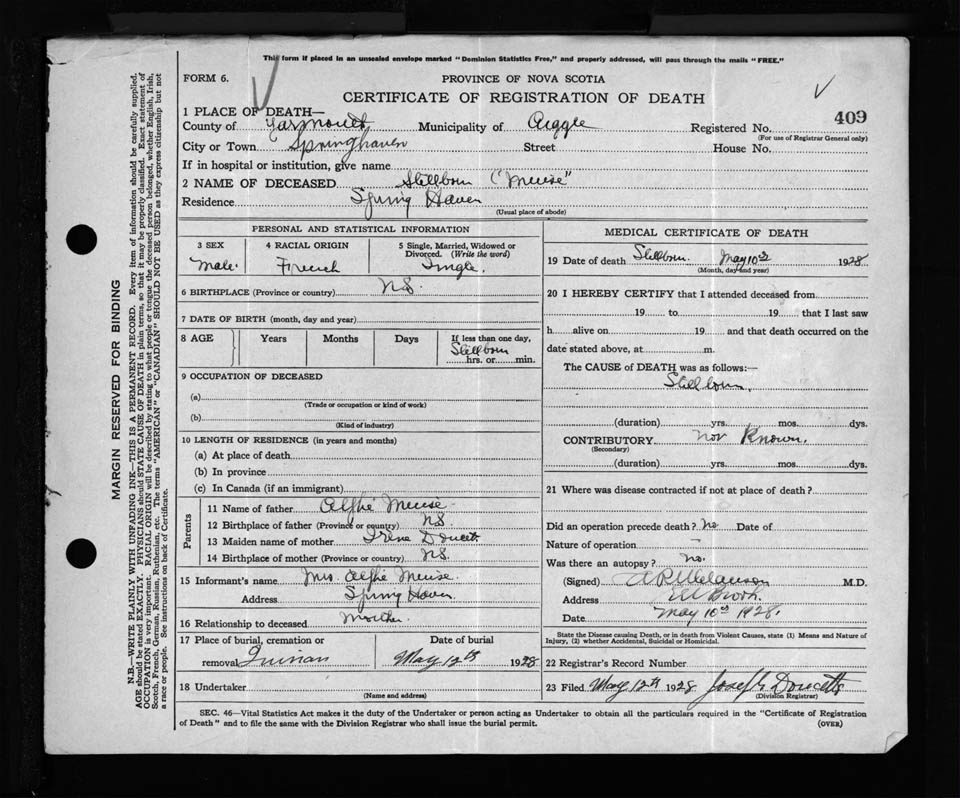 This form if placed in an unsealed envelope marked "Dominion Statistics Free," and properly addressed, will pass through the mails "FREE."
FORM 6.
PROVINCE OF NOVA SCOTIA
CERTIFICATE OF REGISTRATION OF DEATH
409
1 PLACE OF DEATH—
County of Yarmouth Municipality of Argyle Registered No.
(For use of Registrar General only)
City or Town Springhaven Street House No.
If in hospital or institution, give name
2 NAME OF DECEASED Stillborn ("Meuse"
Residence Spring Haven
(Usual place of abode)
PERSONAL AND STATISTICAL INFORMATION
3 SEX 4 RACIAL ORIGIN 5 Single, Married, Widowed or Divorced. (Write the word)
Male. French Single.
6 BIRTHPLACE (Province or country) NS.
7 DATE OF BIRTH (month, day and year)
8 AGE Years Months Days If less than one day,
Stillborn
hrs. or min.
9 OCCUPATION OF DECEASED
(a)
(Trade or occupation or kind of work)
(b)
(Kind of industry)
10 LENGTH OF RESIDENCE (in years and months)
(a) At place of death
(b) In province
(c) In Canada (if an immigrant)
Parents
11 Name of father Alphé Meuse
12 Birthplace of father (Province or country) NS.
13 Maiden name of mother Irene Doucett
14 Birthplace of mother (Province or country) NS.
15 Informant's name Mrs. Alphé Meuse.
Address Spring Haven
16 Relationship to deceased Mother.
17 Place of burial, cremation or Date of burial
removal Quinan May 12th 1928
18 Undertaker
(Name and address)
MEDICAL CERTIFICATE OF DEATH
19 Date of death Stillborn. May 10th 1928
(Month, day and year)
20 I HEREBY CERTIFY that I attended deceased from
19 to 19 that I last saw
h alive on 19 and that death occurred on the
date stated above, at m.
The CAUSE of DEATH was as follows:—
Stillborn
(duration) yrs. mos. dys.
CONTRIBUTORY Not Known.
(Secondary)
(duration) yrs. mos. dys.
21 Where was disease contracted if not at place of death?
Did an operation precede death? No Date of
Nature of operation —
Was there an autopsy? No.
(Signed) A R Melanson M.D.
Address
Date May 10th 1928.
State the Disease causing Death, or in death from Violent Causes, state (1) Means and Nature of
Injury, (2) whether Accidental, Suicidal or Homicidal.
22 Registrar's Record Number
23 Filed May 12th 1928 Joseph Doucette
(Division Registrar)
SEC. 46—Vital Statistics Act makes it the duty of the Undertaker or person acting as Undertaker to obtain all the particulars required in the "Certificate of Registration
of Death" and to file the same with the Division Registrar who shall issue the burial permit. (OVER)
MARGIN RESERVED FOR BINDING
N.B.—WRITE PLAINLY WITH UNFADING INK—THIS IS A PERMANENT RECORD. Every item of information should be carefully supplied.
AGE should be stated EXACTLY. PHYSICIANS should STATE CAUSE OF DEATH in plain terms, so that it may be properly classified. Exact statement of
OCCUPATION is very important. RACIAL ORIGIN will be described by stating to what people or tongue the deceased person belonged, whether English, Irish,
Scotch, French, German, Russian, Ruthenian, etc. The terms "AMERICAN" or "CANADIAN" SHOULD NOT BE USED as they express citizenship but not
a race or people. See instructions on back of Certificate.